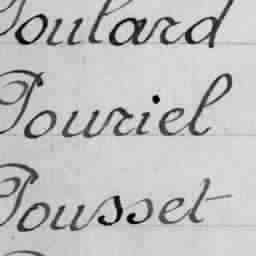 Poulard
Pouriel
Pousset